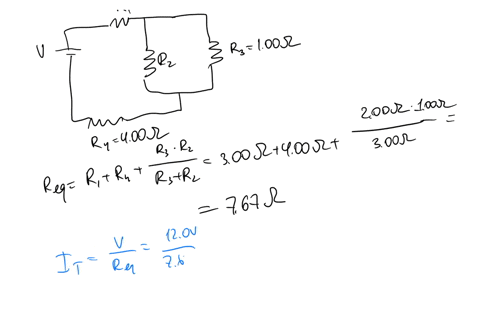 V
R₂
R₃=1.00Ω
R₄=4.00Ω
Req = R₁+R₄+ R₃·R₂ / R₃+R₂ = 3.00Ω+4.00Ω+ 2.00Ω·1.00Ω / 3.00Ω =
= 7.67Ω
I_T = V / Req = 12.0V / 7.6